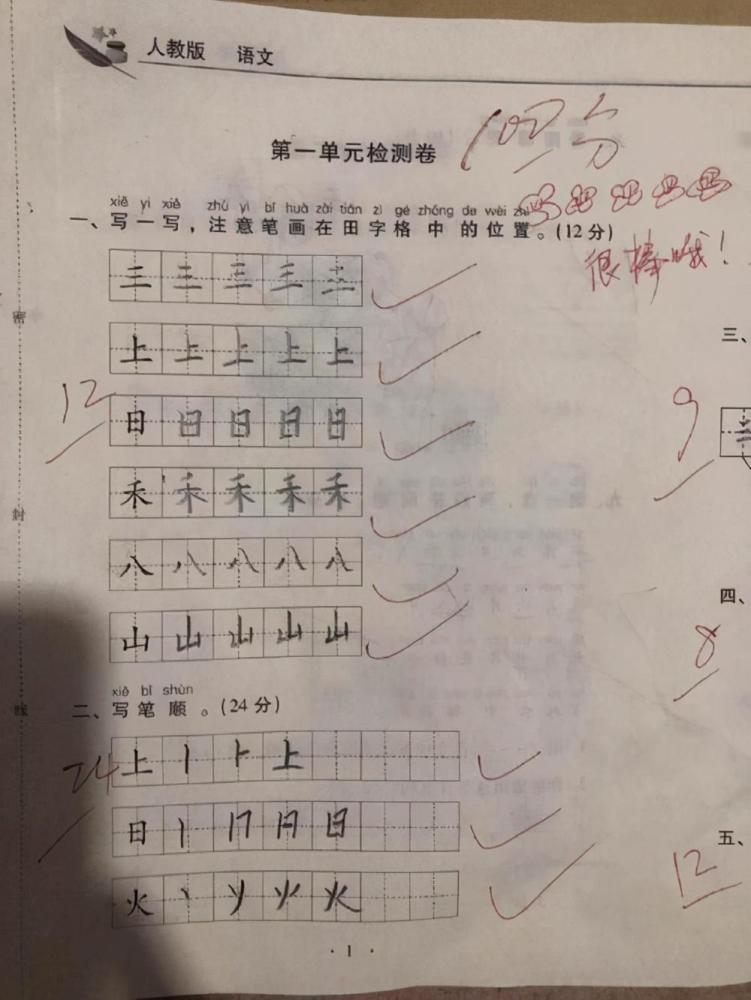 人教版 语文
第一单元检测卷
100分
xiě yi xiě zhù yì bǐ huà zài tián zì gé zhōng de wèi zhi
一、写一写，注意笔画在田字格中的位置。(12分)
很棒哦！
三 三 三 三 三
上 上 上 上 上
12
日 日 日 日 日
禾 禾 禾 禾 禾
八 八 八 八 八
山 山 山 山 山
xiě bǐ shùn
二、写笔顺。(24分)
24
上 丨 ⺊ 上
日 丨 冂 月 日
火 丶 丷 火
· 1 ·
密
封
线
三、
9
四、
8
五、
12